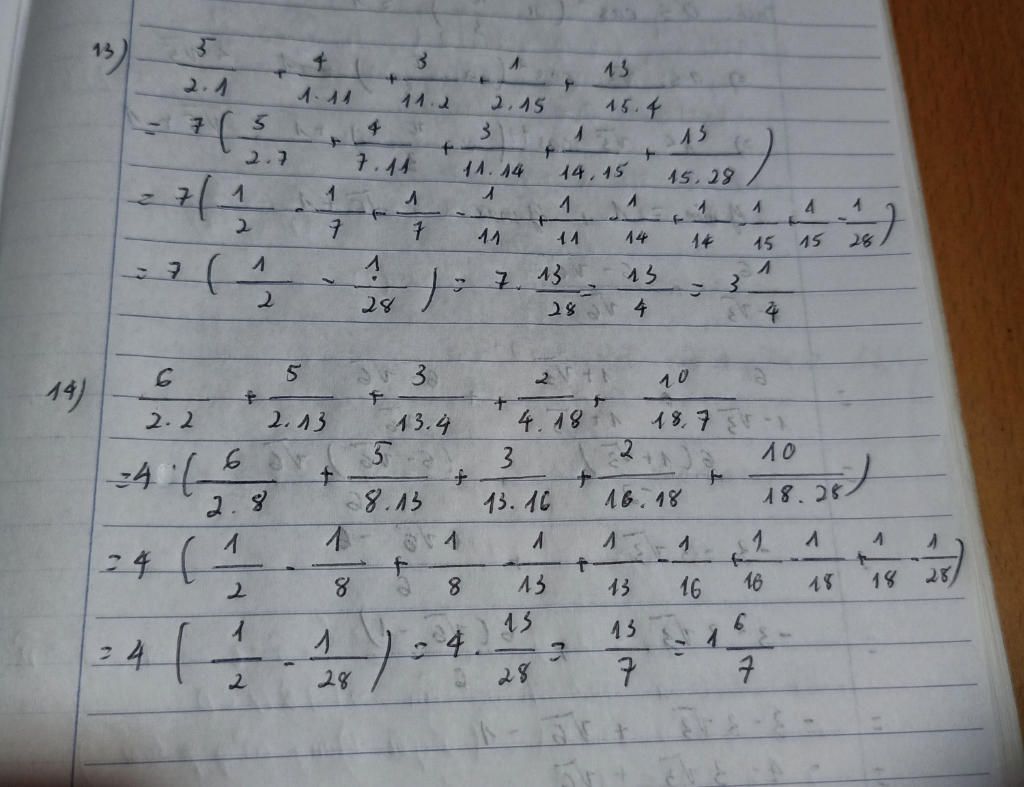 13) 5/2.1 + 4/1.11 + 3/11.2 + 1/2.15 + 13/15.4
= 7 ( 5/2.7 + 4/7.11 + 3/11.14 + 1/14.15 + 13/15.28 )
= 7 ( 1/2 - 1/7 + 1/7 - 1/11 + 1/11 - 1/14 + 1/14 - 1/15 + 1/15 - 1/28 )
= 7 ( 1/2 - 1/28 ) = 7 . 13/28 = 13/4 = 3 1/4
14) 6/2.2 + 5/2.13 + 3/13.4 + 2/4.18 + 10/18.7
= 4 . ( 6/2.8 + 5/8.13 + 3/13.16 + 2/16.18 + 10/18.28 )
= 4 ( 1/2 - 1/8 + 1/8 - 1/13 + 1/13 - 1/16 + 1/16 - 1/18 + 1/18 - 1/28 )
= 4 ( 1/2 - 1/28 ) = 4 . 13/28 = 13/7 = 1 6/7